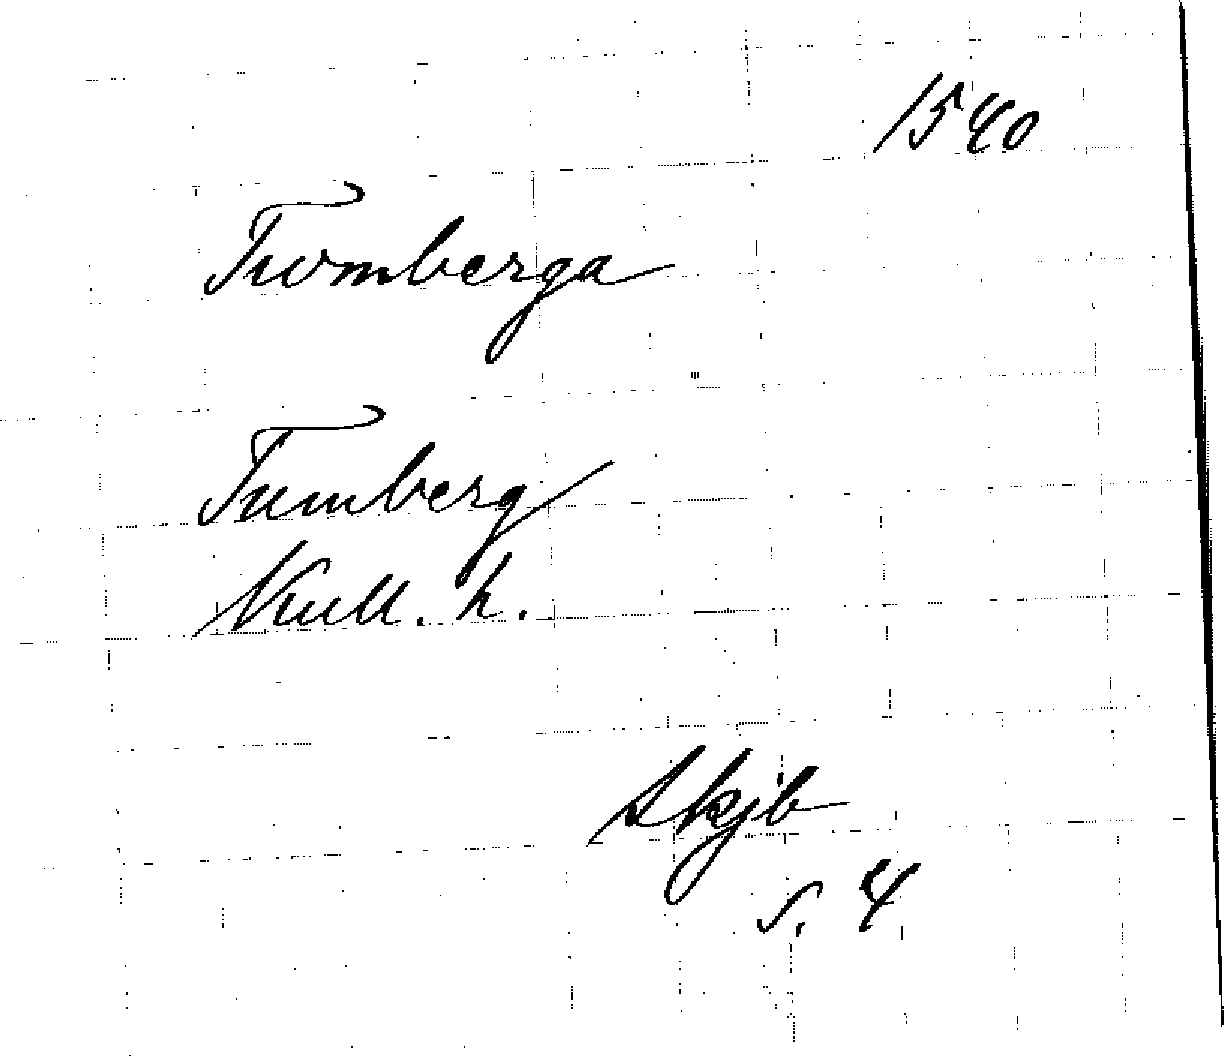 1540
Twmberga
Tumberg
Kull. h.
Skjb
s. 4